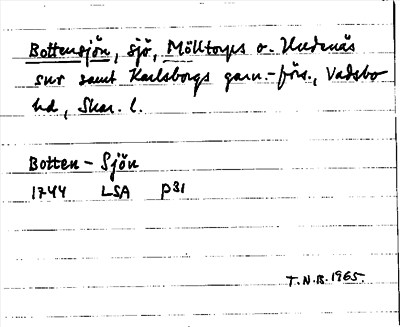 Bottensjön, sjö, Mölltorps o. Undenäs
snr samt Karlsborgs garn.-förs., Vadsbo
hd, Skar. l.
Botten-Sjön
1744 LSA P31
T.N.B. 1965